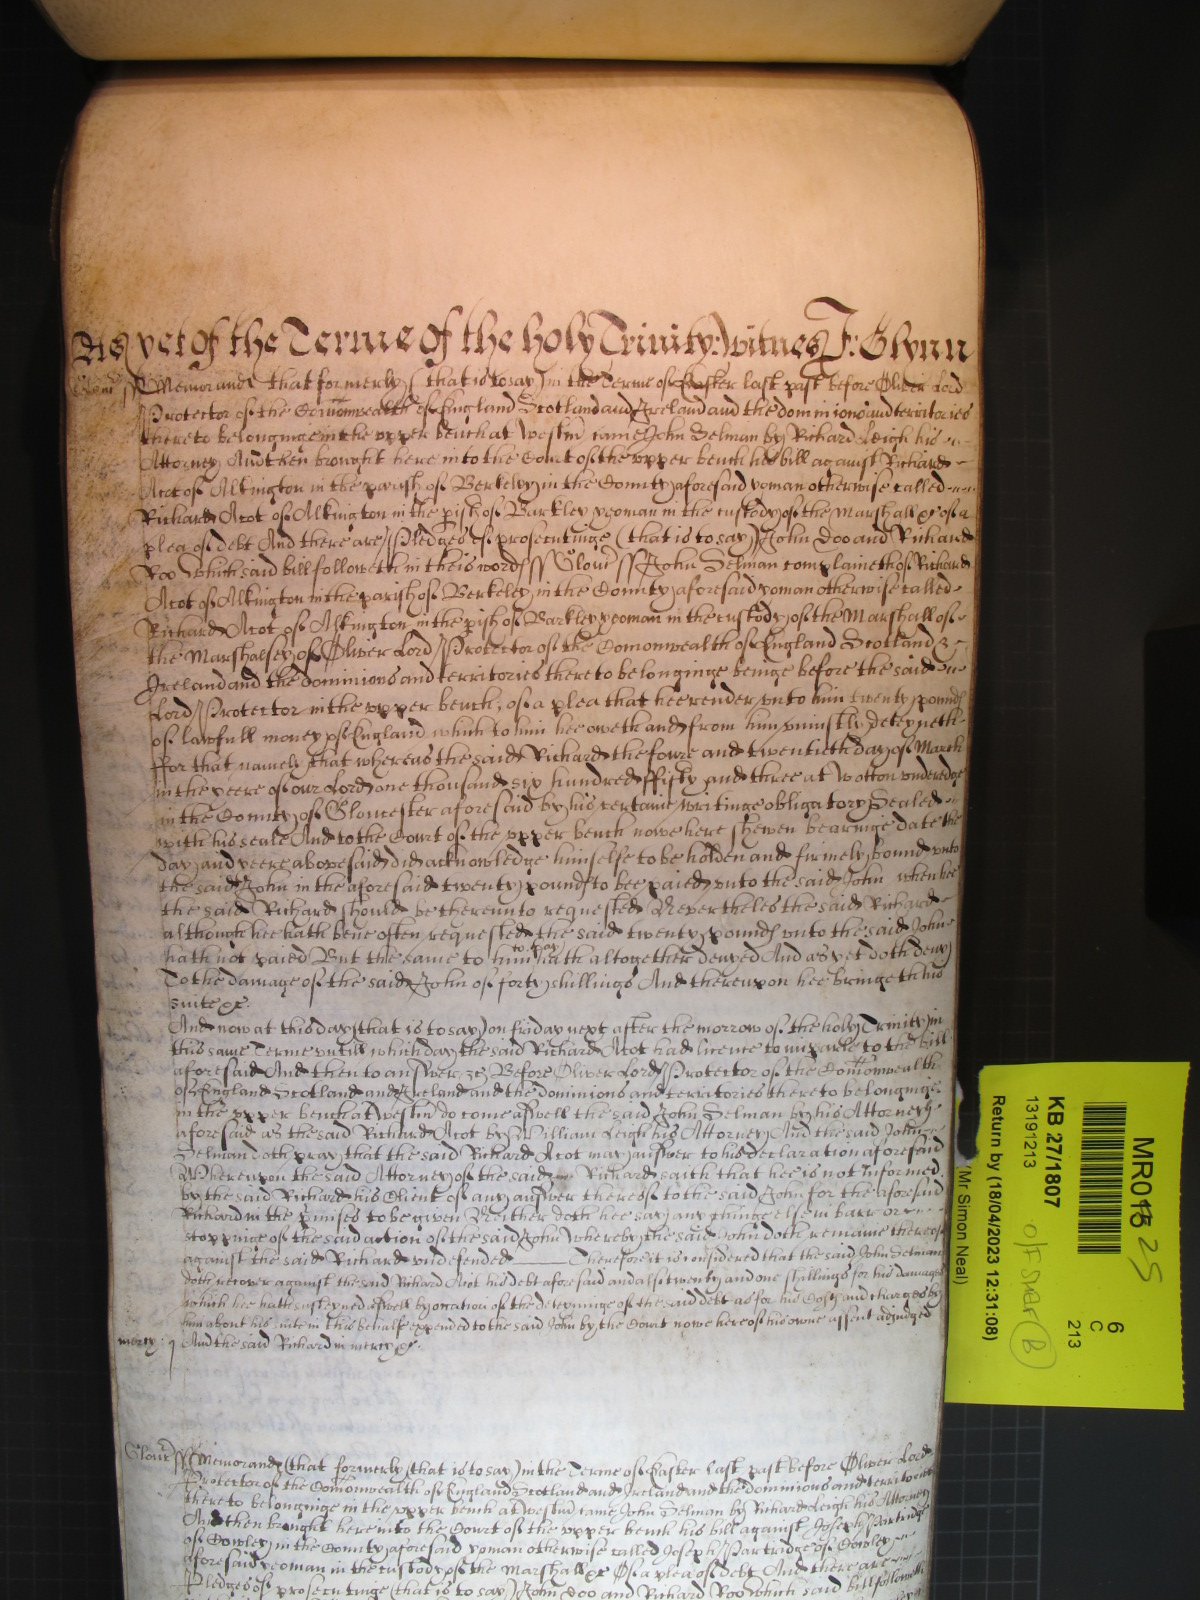 As yet of the Terme of the holy Trinity: witnes J: Glynn
Glouc ss Memorand that formerly (that is to say) in the Terme of Easter last past before Oliver Lord
Protector of the Comonwealth of England Scotland and Ireland and the dominions and territories
thereto belonginge in the upper bench at Westm came John Selman by Richard Leigh his
Attorney And then brought here into the Court of the upper bench his bill against Richard
Atot of Alkington in the parish of Berkeley in the County aforesaid yoman otherwise called
Richard Atot of Alkington in the pish of Barkley yeoman in the custody of the Marshall &c of a
plea of debt And there are Pledges of prosecutinge (that is to say) John Doo and Richard
Roo which said bill followeth in theis words ss Glouc ss John Selman complaineth of Richard
Atot of Alkington in the parish of Berkeley in the County aforesaid yoman otherwise called
Richard Atot of Alkington in the pish of Barkley yeoman in the custody of the Marshall of
the Marshalsey of Oliver Lord Protector of the Comonwealth of England Scotland &
Ireland and the dominions and territories thereto belonginge beinge before the said
Lord Protector in the upper bench, of a plea that hee render unto him twenty pounds
of lawfull money of England which to him hee oweth and from him uniustly deteyneth
ffor that namely that whereas the said Richard the foure and twentieth day of March
in the yeere of our Lord one thousand six hundred ffifty and three at Wotton underedge
in the County of Gloucester aforesaid by his certaine writinge obligatory Sealed
with his seale And to the Court of the upper bench nowe here shewen bearinge date the
day and yeere abovesaid did acknowledge himselfe to be holden and firmely bound unto
the said John in the aforesaid twenty pounds to bee paied unto the said John when hee
the said Richard should be thereunto requested Neverthelesse the said Richard
although hee hath bene often requested the said twenty pounds unto the said John
hath not paied But the same to him to pay hath altogether denyed And as yet doth deny
To the damage of the said John of forty shillings And thereupon hee bringeth his
suite &c.
And now at this day (that is to say) on friday next after the morrow of the holy Trinity in
this same Terme untill which day the said Richard Atot had licence to imparle to the bill
aforesaid And then to answer &c Before Oliver Lord Protector of the Comonwealth
of England Scotland and Ireland and the dominions and territories thereto belonginge
in the upper bench at Westm do come aswell the said John Selman by his Attorney
aforesaid as the said Richard Atot by William Leigh his Attorney And the said John
Selman doth pray that the said Richard Atot may answer to his declaration aforesaid
Whereupon the said Attorney of the said Richard saith that hee is not Informed
by the said Richard his Client of any answer thereof to the said John for the aforesaid
Richard in the pmises to be given Neither doth hee say any thinge else in barr or
stoppinge of the said action of the said John whereby the said John doth remaine thereof
against the said Richard undefended Therefore it is considered that the said John Selman
doth recover against the said Richard Atot his debt aforesaid and also twenty and one shillings for his damages
which hee hath susteyned aswell by occation of the deteyninge of the said debt as for his Costs and charges by
him about his suite in this behalfe expended to the said John by the Court nowe here of his owne assent adjudged
mercy: And the said Richard in mercy &c.
Glouc ss Memorand that formerly (that is to say) in the Terme of Easter last past before Oliver Lord
Protector of the Comonwealth of England Scotland and Ireland and the dominions and territories
thereto belonginge in the upper bench at Westm came John Selman by Richard Leigh his Attorney
And then brought here into the Court of the upper bench his bill against Joseph Partridge
of Cowley in the County aforesaid yoman otherwise called Joseph Partridge of Cowley
aforesaid yeoman in the custody of the Marshall &c Of a plea of debt And there are
Pledges of prosecutinge (that is to say) John Doo and Richard Roo which said bill followeth
MR018 25
6
C
213
KB 27/1807
13191213
O/F SMAP (B)
Return by (18/04/2023 12:31:08)
(Mr Simon Neal)